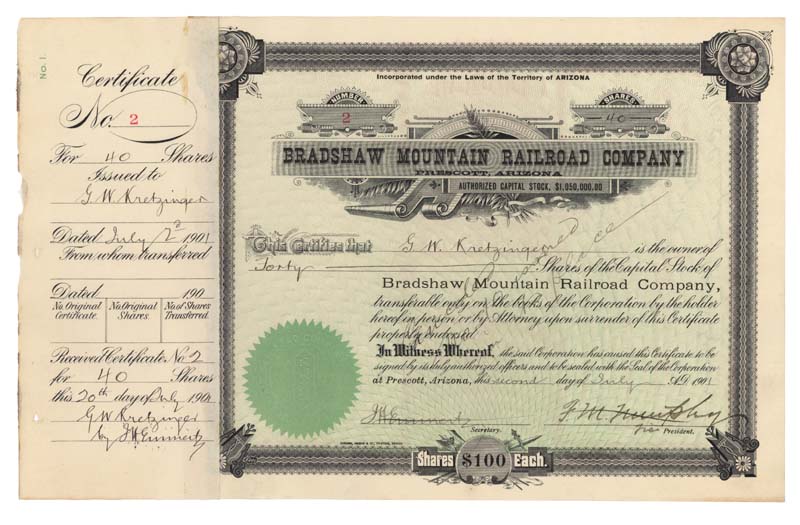 No. 1.
Certificate
No. 2
For 40 Shares
Issued to
G. W. Kretzinger
Dated July 2d 1901
From whom transferred
Dated 190
No. Original Certificate. No. Original Shares. No. of Shares Transferred.
Received Certificate No. 2
for 40 Shares
this 20th day of July 1901
G W Kretzinger
by J H Emmert
Incorporated under the Laws of the Territory of ARIZONA
NUMBER
2
SHARES
40
BRADSHAW MOUNTAIN RAILROAD COMPANY
PRESCOTT, ARIZONA.
AUTHORIZED CAPITAL STOCK, $1,050,000.00
This Certifies that G. W. Kretzinger is the owner of
Forty Shares of the Capital Stock of
Bradshaw Mountain Railroad Company,
transferable only on the books of the Corporation by the holder
hereof in person or by Attorney upon surrender of this Certificate
properly endorsed.
In Witness Whereof, the said Corporation has caused this Certificate to be
signed by its duly authorized officers and to be sealed with the Seal of the Corporation
at Prescott, Arizona, this second day of July A.D. 1901
J H Emmert
Secretary.
F. M. Murphy
Vice President.
Shares $100 Each.